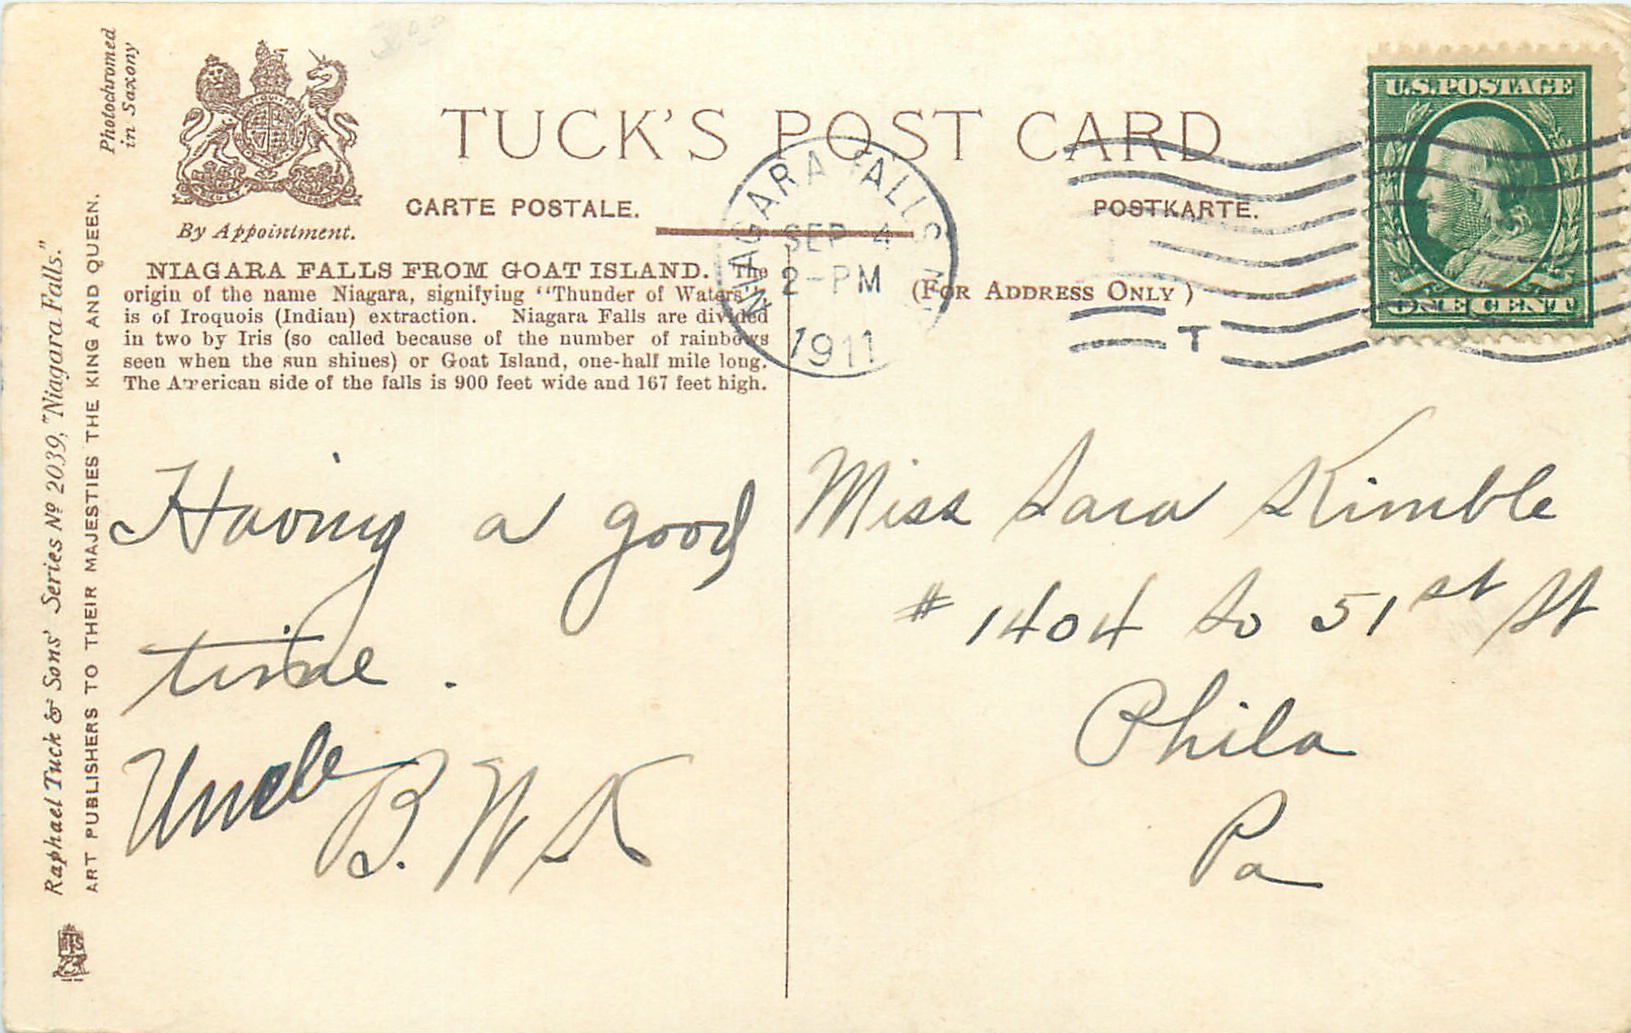 Photochromed
in Saxony
By Appointment.
TUCK'S POST CARD
CARTE POSTALE.
POSTKARTE.
(FOR ADDRESS ONLY)
NIAGARA FALLS FROM GOAT ISLAND. The
origin of the name Niagara, signifying "Thunder of Waters"
is of Iroquois (Indian) extraction. Niagara Falls are divided
in two by Iris (so called because of the number of rainbows
seen when the sun shines) or Goat Island, one-half mile long.
The American side of the falls is 900 feet wide and 167 feet high.
Raphael Tuck & Sons' Series Nº 2039, "Niagara Falls."
ART PUBLISHERS TO THEIR MAJESTIES THE KING AND QUEEN.
NIAGARA FALLS N
SEP 4
2-PM
1911
T
U.S. POSTAGE
ONE CENT
Having a good
time.
Uncle B. W K
Miss Sara Kimble
# 1404 So 51st St
Phila
Pa